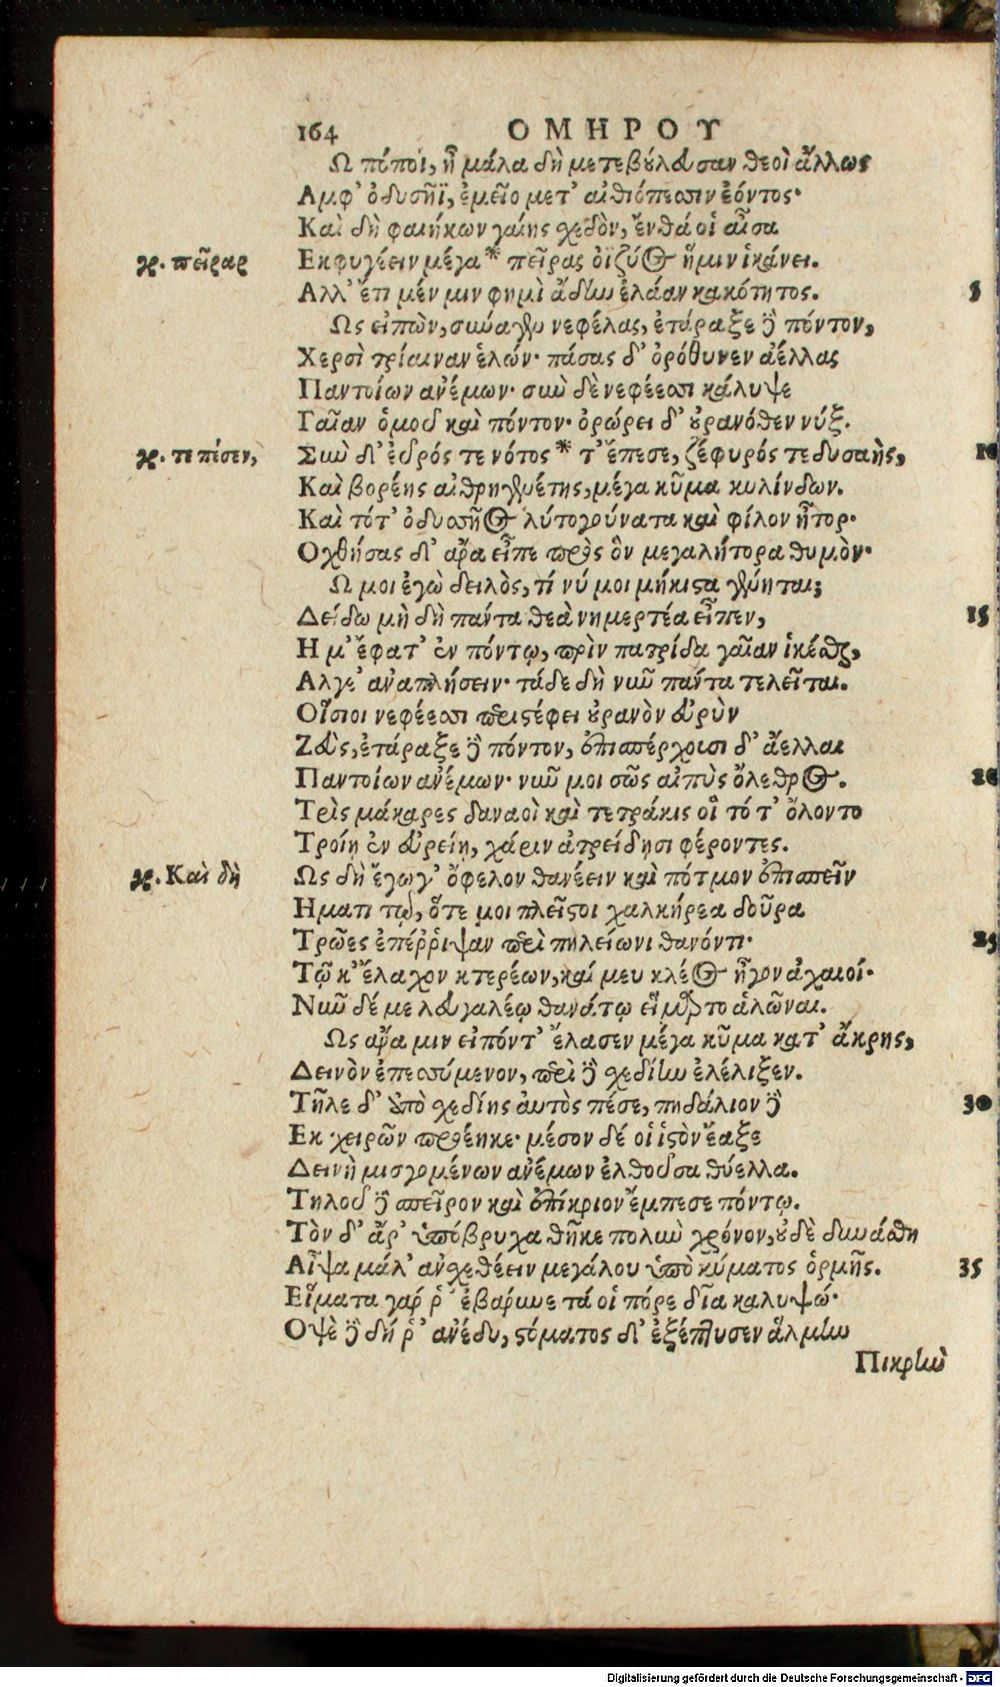 164 ΟΜΗΡΟΥ
Ω πόποι, ἦ μάλα δὴ μετεβούλευσαν θεοὶ ἄλλως
Αμφ' ὀδυσῆϊ, ἐμεῖο μετ' αἰθιόπεσσιν ἐόντος·
Καὶ δὴ φαιήκων γαίης σχεδὸν, ἔνθά οἱ αἶσα
γρ. πεῖραρ
Εκφυγέειν μέγα * πεῖρας ὀϊζύος ἥμιν ἱκάνει.
Αλλ' ἔτι μέν μιν φημὶ ἄδην ἐλάαν κακότητος. 5
Ως εἰπὼν, σύναγεν νεφέλας, ἐτάραξε δὲ πόντον,
Χερσὶ τρίαιναν ἑλών· πάσας δ' ὀρόθυνεν ἀέλλας
Παντοίων ἀνέμων· σὺν δὲ νεφέεσσι κάλυψε
Γαῖαν ὁμοῦ καὶ πόντον· ὀρώρει δ' οὐρανόθεν νύξ.
γρ. τε πέσεν,
Σὺν δ' εὖρός τε νότος * τ' ἔπεσε, ζέφυρός τε δυσαὴς, 10
Καὶ βορέης αἰθρηγενέτης, μέγα κῦμα κυλίνδων.
Καὶ τότ' ὀδυσσῆος λύτο γούνατα καὶ φίλον ἦτορ·
Οχθήσας δ' ἄρα εἶπε πρὸς ὃν μεγαλήτορα θυμὸν·
Ω μοι ἐγὼ δειλὸς, τί νύ μοι μήκιστα γένηται;
Δείδω μὴ δὴ πάντα θεὰ νημερτέα εἶπεν, 15
Η μ' ἔφατ' ἐν πόντῳ, πρὶν πατρίδα γαῖαν ἱκέσθαι,
Αλγε' ἀναπλήσειν· τάδε δὴ νῦν πάντα τελεῖται.
Οἵοισι νεφέεσσι περιστέφει οὐρανὸν εὐρὺν
Ζεὺς, ἐτάραξε δὲ πόντον, ἐπισπέρχουσι δ' ἄελλαι
Παντοίων ἀνέμων· νῦν μοι σῶς αἰπὺς ὄλεθρος. 20
Τρὶς μάκαρες δαναοὶ καὶ τετράκις οἳ τότ' ὄλοντο
Τροίῃ ἐν εὐρείῃ, χάριν ἀτρείδῃσι φέροντες.
γρ. Καὶ δὴ
Ως δὴ ἔγωγ' ὄφελον θανέειν καὶ πότμον ἐπισπεῖν
Ηματι τῷ, ὅτε μοι πλεῖστοι χαλκήρεα δοῦρα
Τρῶες ἐπέῤῥιψαν περὶ πηλείωνι θανόντι· 25
Τῷ κ' ἔλαχον κτερέων, καί μευ κλέος ἦγον ἀχαιοί·
Νῦν δέ με λευγαλέῳ θανάτῳ εἵμαρτο ἁλῶναι.
Ως ἄρα μιν εἰπόντ' ἔλασεν μέγα κῦμα κατ' ἄκρης,
Δεινὸν ἐπεσσύμενον, περὶ δὲ σχεδίην ἐλέλιξεν.
Τῆλε δ' ἀπὸ σχεδίης αὐτὸς πέσε, πηδάλιον δὲ 30
Εκ χειρῶν προέηκε· μέσον δέ οἱ ἱστὸν ἔαξε
Δεινὴ μισγομένων ἀνέμων ἐλθοῦσα θύελλα.
Τηλοῦ δὲ σπεῖρον καὶ ἐπίκριον ἔμπεσε πόντῳ.
Τὸν δ' ἄρ' ὑπόβρυχα θῆκε πολὺν χρόνον, οὐδὲ δυνάσθη
Αἶψα μάλ' ἀνσχεθέειν μεγάλου ὑπὸ κύματος ὁρμῆς. 35
Εἵματα γάρ ῥ' ἐβάρυνε τά οἱ πόρε δῖα καλυψώ·
Οψὲ δὲ δή ῥ' ἀνέδυ, στόματος δ' ἐξέπτυσεν ἅλμην
Πικρὴν
Digitalisierung gefördert durch die Deutsche Forschungsgemeinschaft - DFG